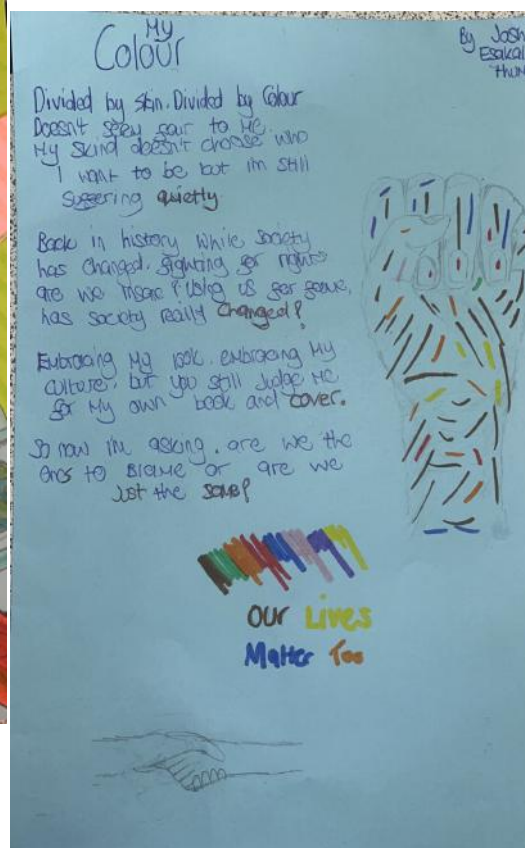 My
Colour
By Josh
Divided by skin. Divided by Colour
Doesn't seem fair to Me.
My Skind doesn't choose who
I want to be but im still
suffering quietly
Back in history while society
has changed. fighting for rights
are we insane? Using us for
has society really changed?
Embracing My look. embracing My
culture. but you still Judge Me
for My own book and cover.
So now I'm asking. are we the
ones to Blame or are we
Just the same?
OUR Lives
Matter Too